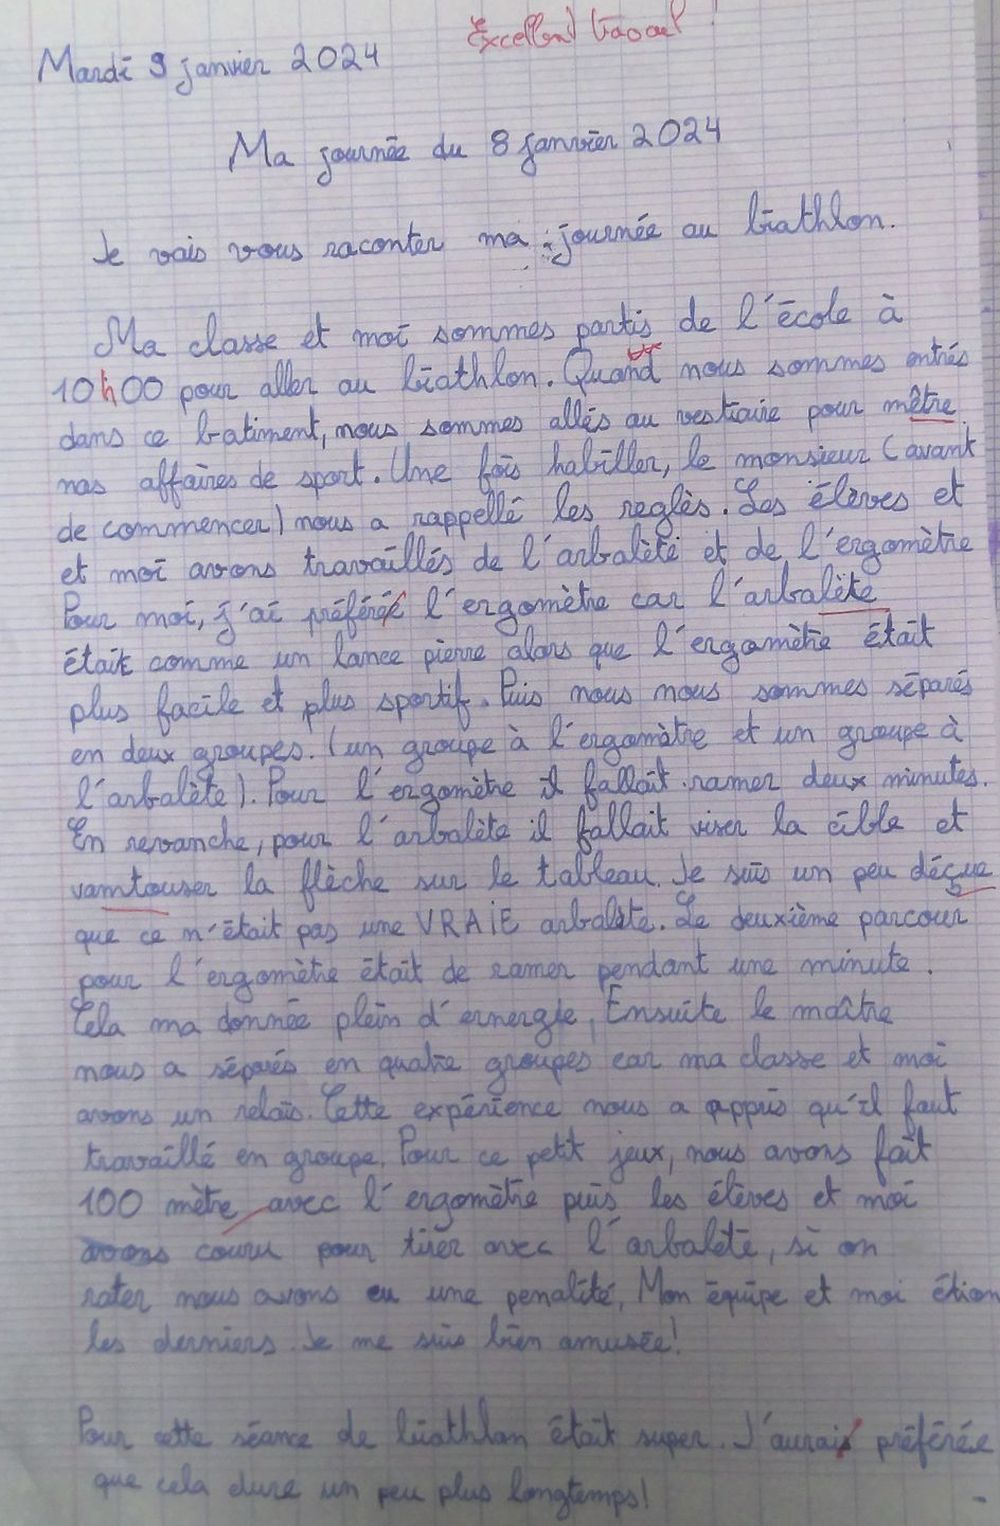 Excellent travail !
Mardi 9 janvier 2024
Ma journée du 8 janvier 2024
Je vais vous raconter ma journée au biathlon.
Ma classe et moi sommes partis de l'école à
10h00 pour aller au biathlon. Quand nous sommes entrés
dans ce batiment, nous sommes allés au vestiaire pour mêtre
nos affaires de sport. Une fois habiller, le monsieur (avant
de commencer) nous a rappellé les reglès. Les élèves et
et moi avons travaillés de l'arbalète et de l'ergomètre
Pour moi, j'ai préféré l'ergomètre car l'arbalète
était comme un lance pierre alors que l'ergomètre était
plus facile et plus sportif. Puis nous nous sommes séparés
en deux groupes. (un groupe à l'ergomètre et un groupe à
l'arbalète). Pour l'ergomètre il fallait ramer deux minutes.
En revanche, pour l'arbalète il fallait viser la cible et
vamtouser la flèche sur le tableau. Je suis un peu déçue
que ce n'était pas une VRAiE arbalète. Le deuxième parcour
pour l'ergomètre était de ramer pendant une minute.
Cela ma donnée plein d'ernergie, Ensuite le maître
nous a séparés en quatre groupes car ma classe et moi
avons un relais. Cette expérience nous a appris qu'il faut
travaillé en groupe. Pour ce petit jeux, nous avons fait
100 mètre avec l'ergomètre puis les élèves et moi
avons couru pour tirer avec l'arbalète, si on
rater nous avons eu une penalité, Mon équipe et moi étion
les derniers. Je me suis bien amusée!
Pour cette séance de biathlon était super. J'aurai préférée
que cela dure un peu plus longtemps!